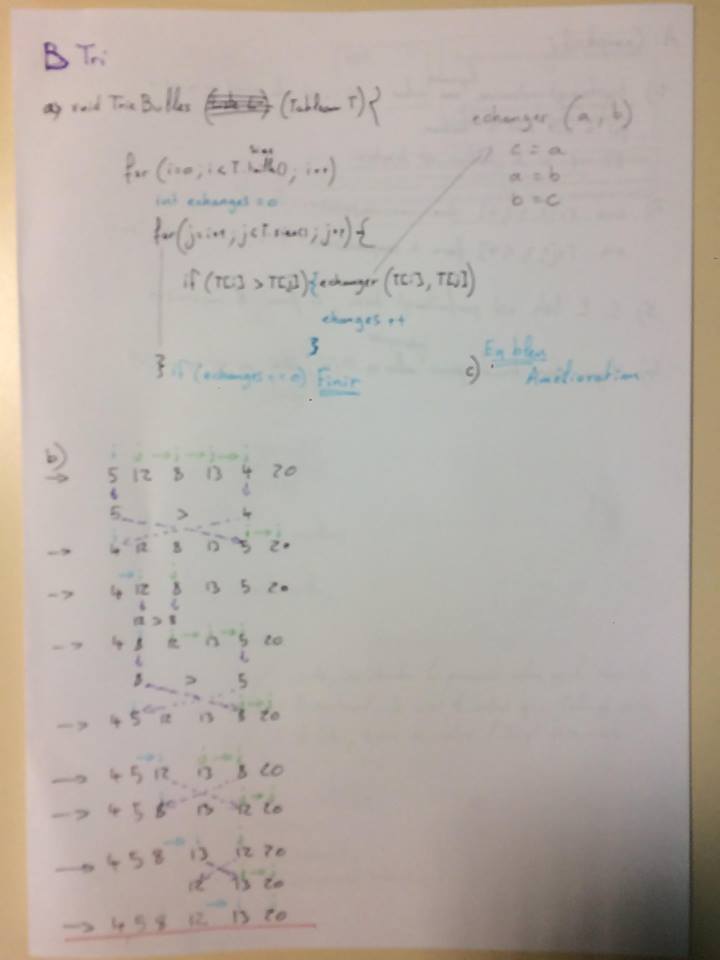 B Tri
a) void TrieBulles (Tableau T){
echanger (a, b)
c = a
a = b
b = c
for (i=0; i<T.size(); i++)
int echanges = 0
for(j=i+1; j<T.size(); j++){
if (T[i] > T[j]){echanger (T[i], T[j])
echanges ++
}
} if (echanges == 0) Finir
c) En bleu
Amélioration
b)
i j j j j
-> 5 12 8 13 4 20
5 > 4
-> 4 12 8 13 5 20
-> 4 12 8 13 5 20
12 > 8
-> 4 8 12 13 5 20
8 > 5
-> 4 5 12 13 8 20
-> 4 5 12 13 8 20
-> 4 5 8 13 12 20
-> 4 5 8 13 12 20
12 13 20
-> 4 5 8 12 13 20